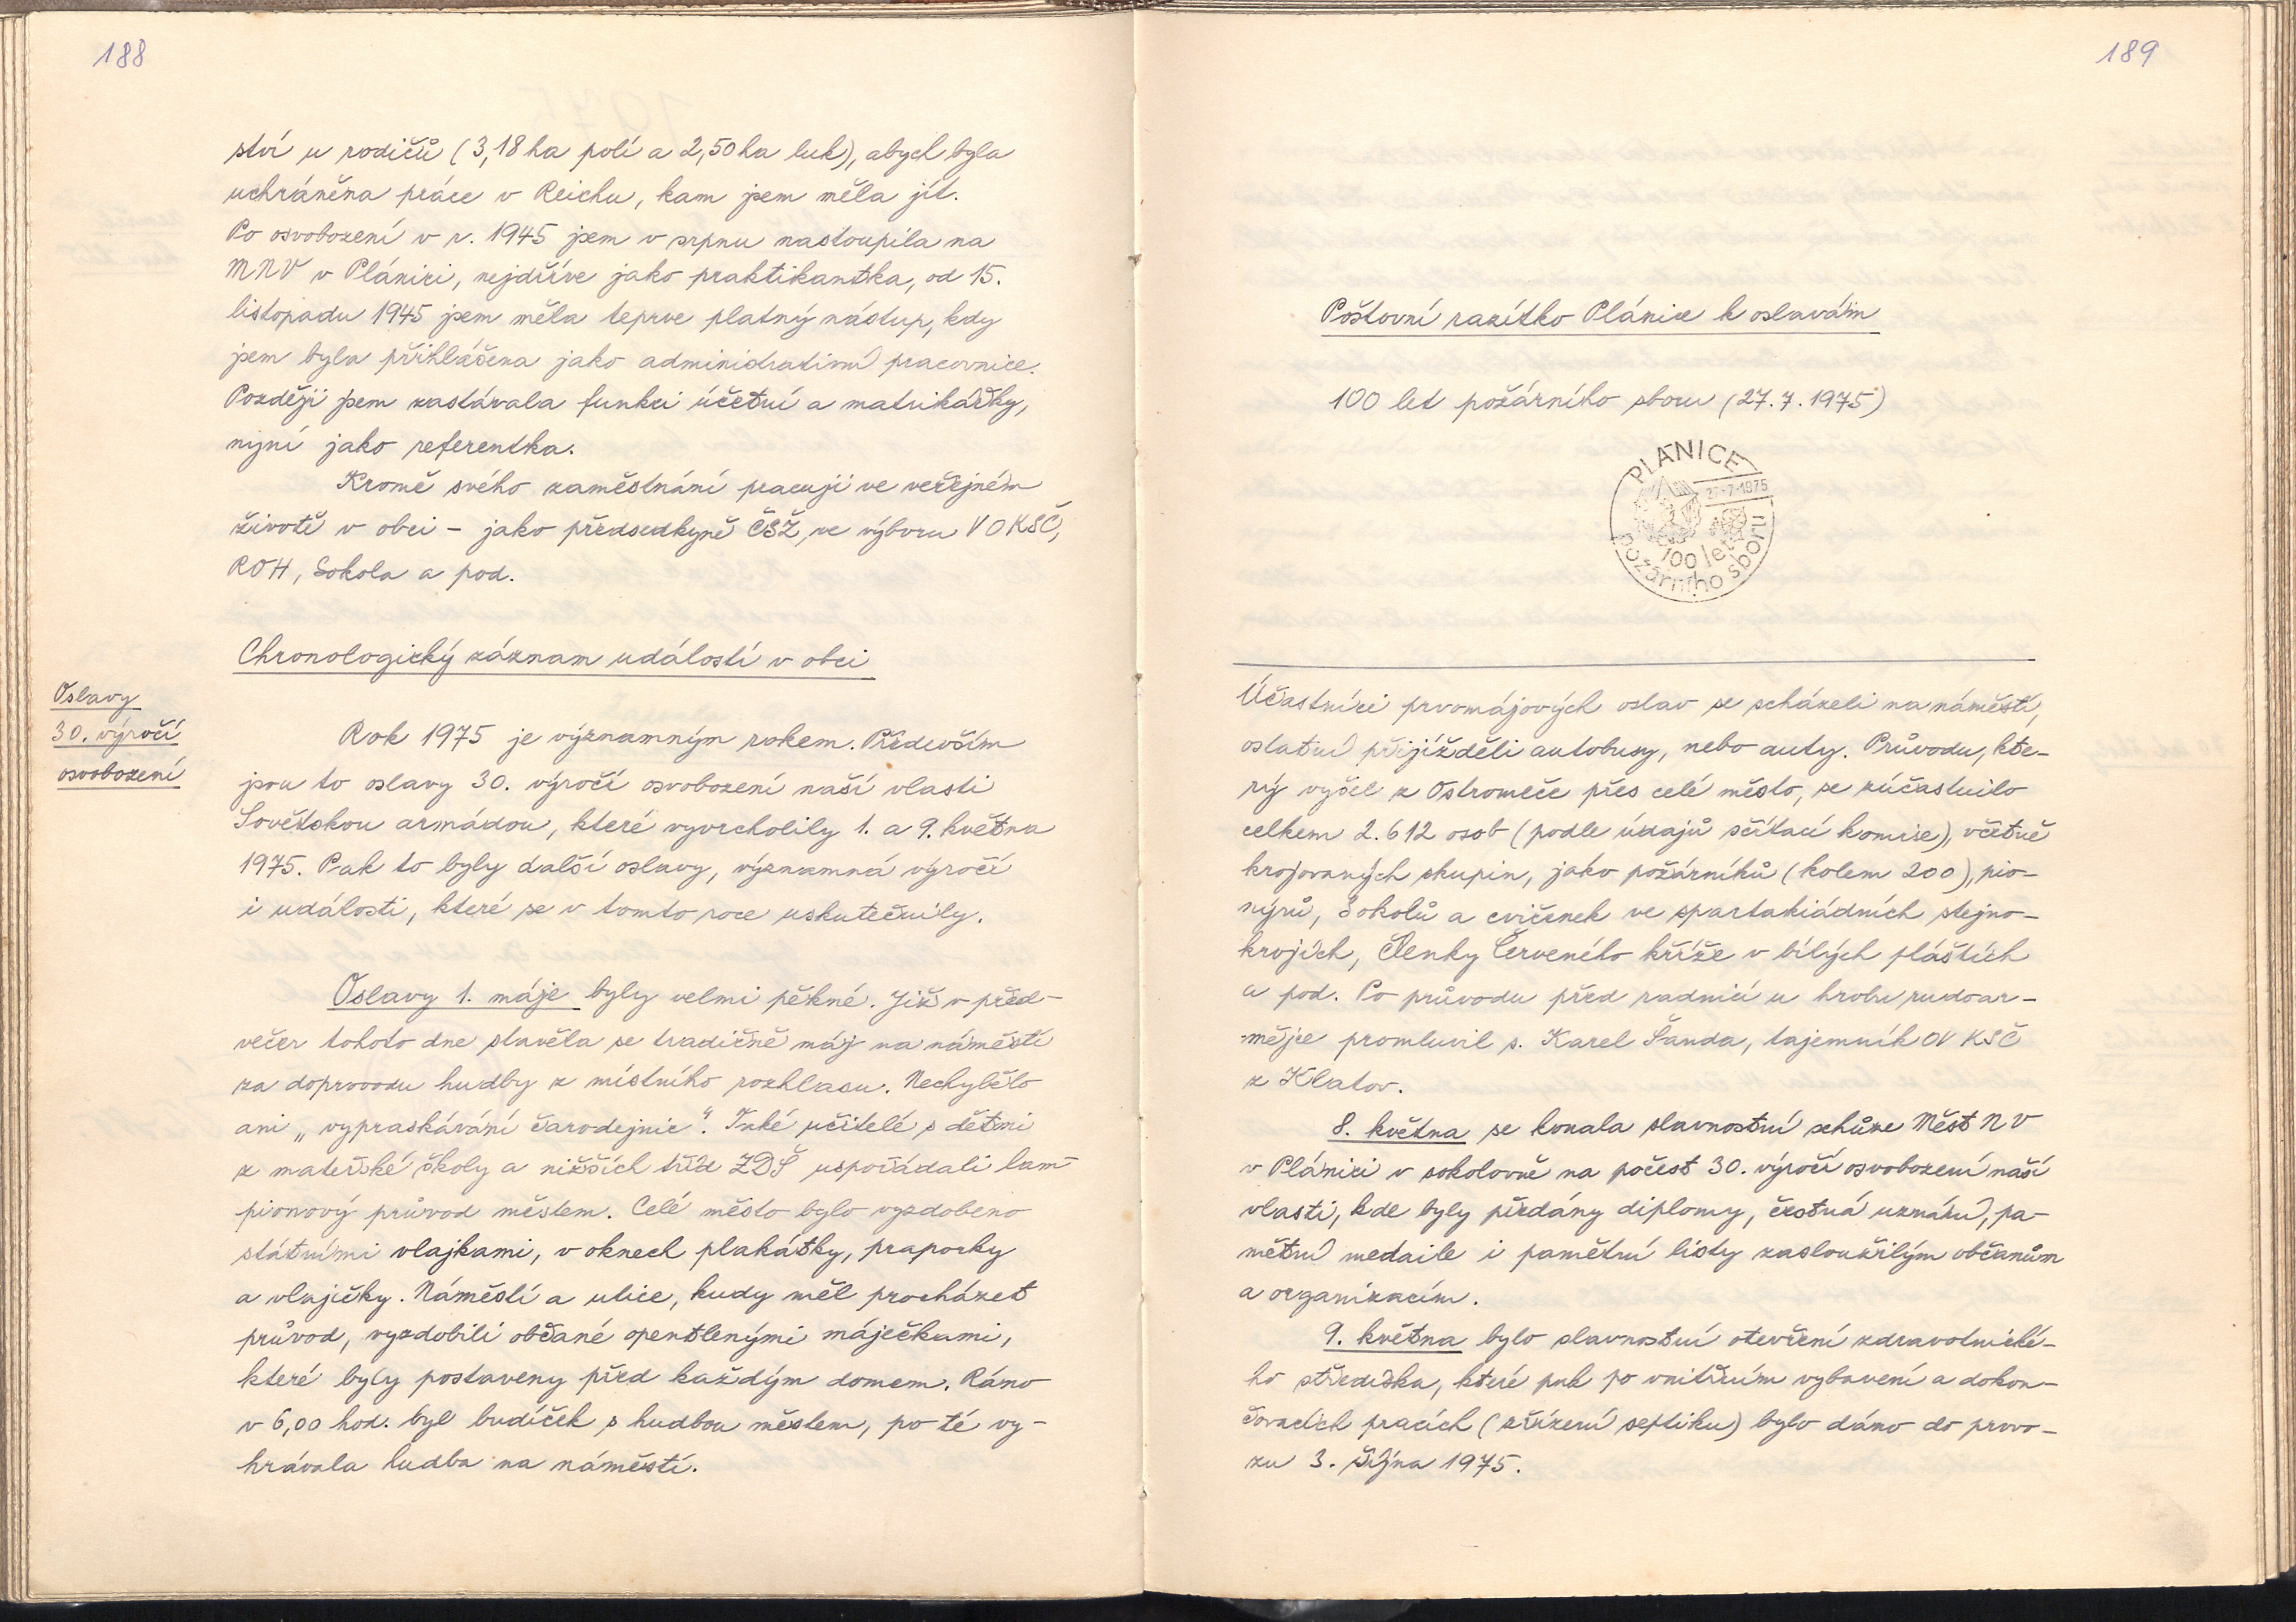 188
ství u rodičů (3,18 ha polí a 2,50 ha luk), abych byla
uchráněna práce v Reichu, kam jsem měla jít.
Po osvobození v r. 1945 jsem v srpnu nastoupila na
MNV v Plánici, nejdříve jako praktikantka, od 15.
listopadu 1945 jsem měla teprve platný nástup, kdy
jsem byla přihlášena jako administrativní pracovnice.
Později jsem zastávala funkci účetní a matrikářky,
nyní jako referentka.
Kromě svého zaměstnání pracuji ve veřejném
životě v obci – jako předsedkyně ČSŽ, ve výboru VO KSČ,
ROH, Sokola a pod.
Chronologický záznam událostí v obci
Oslavy
30. výročí
osvobození
Rok 1975 je významným rokem. Především
jsou to oslavy 30. výročí osvobození naší vlasti
Sovětskou armádou, které vyvrcholily 1. a 9. května
1975. Pak to byly další oslavy, významná výročí
i události, které se v tomto roce uskutečnily.
Oslavy 1. máje byly velmi pěkné. Již v před-
večer tohoto dne stavěla se tradičně máj na náměstí
za doprovodu hudby z místního rozhlasu. Nechybělo
ani „vypraskávání čarodejnic". Také učitelé s dětmi
z mateřské školy a nižších tříd ZDŠ uspořádali lam-
pionový průvod městem. Celé město bylo vyzdobeno
státními vlajkami, v oknech plakátky, praporky
a vlaječky. Náměstí a ulice, kudy měl procházet
průvod, vyzdobili občané opentlenými máječkami,
které byly postaveny před každým domem. Ráno
v 6,00 hod. byl budíček s hudbou městem, po té vy-
hrávala hudba na náměstí.
189
Poštovní razítko Plánice k oslavám
100 let požárního sboru (27.7.1975)
PLÁNICE
27-7-1975
100 let
požárního sboru
Účastníci prvomájových oslav se scházeli na náměstí,
ostatní přijížděli autobusy, nebo auty. Průvodu, kte-
rý vyšel z Ostromeče přes celé město, se zúčastnilo
celkem 2.612 osob (podle údajů sčítací komise), včetně
krojovaných skupin, jako požárníků (kolem 200), pio-
nýrů, Sokolů a cvičenek ve spartakiádních stejno-
krojích, členky Červeného kříže v bílých pláštích
a pod. Po průvodu před radnicí u hrobu rudoar-
mějce promluvil s. Karel Šanda, tajemník OV KSČ
z Klatov.
8. května se konala slavnostní schůze Měst NV
v Plánici v sokolovně na počest 30. výročí osvobození naší
vlasti, kde byly předány diplomy, čestná uznání, pa-
mětní medaile i pamětní listy zasloužilým občanům
a organizacím.
9. května bylo slavnostní otevření zdravotnické-
ho střediska, které pak po vnitřním vybavení a dokon-
čovacích pracích (zřízení septiku) bylo dáno do provo-
zu 3. října 1975.